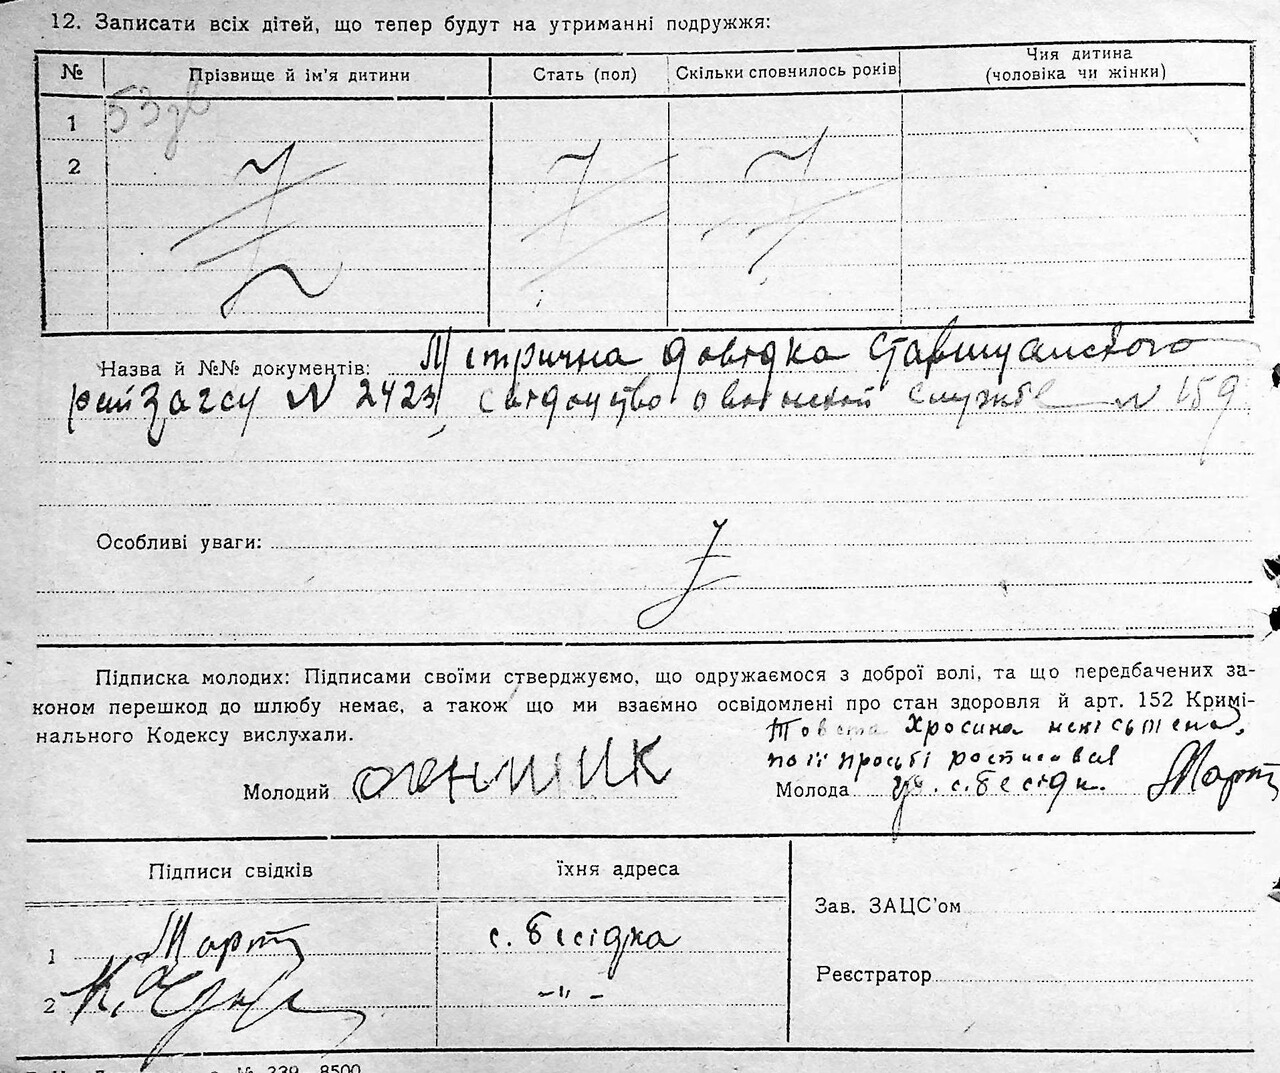 12. Записати всіх дітей, що тепер будут на утриманні подружжя:
№ Прізвище й ім'я дитини Стать (пол) Скільки сповнилось років Чия дитина (чоловіка чи жінки)
53
1
2
Назва й №№ документів: Метрична довідка
райЗагсу N 2423, свідоцтво о воинской службе N 159
Особливі уваги:
Підписка молодих: Підписами своїми стверджуємо, що одружаємося з доброї волі, та що передбачених за-
коном перешкод до шлюбу немає, а також що ми взаємно освідомлені про стан здоровля й арт. 152 Кримі-
нального Кодексу вислухали.
Хросина неписьмена,
по її просьбі росписався
Молодий Молода гр. с. Бесідк. Март
Підписи свідків їхня адреса
Зав. ЗАЦС'ом
1 Март с. Бесідка
Реєстратор
2 К. -"-
№ 239 8500